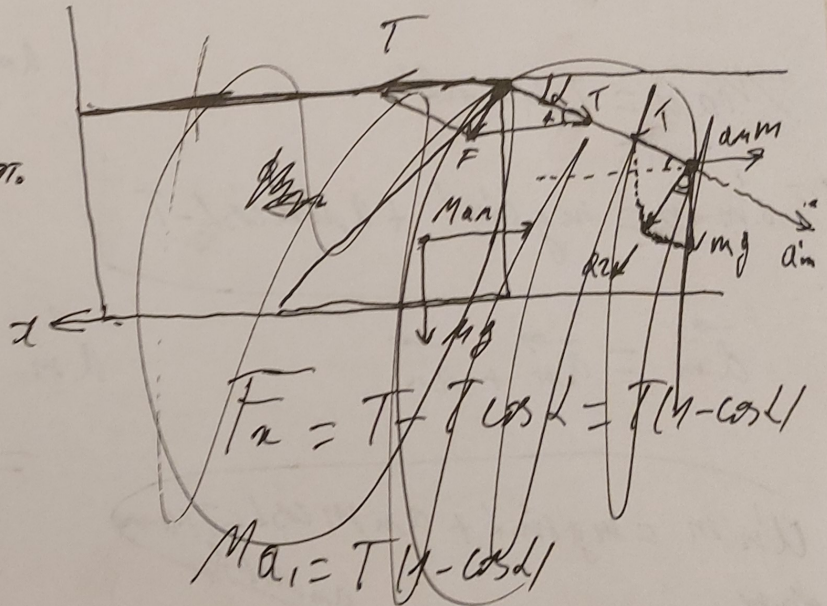 T
α
T
T
a_n m
F
Ma_n
mg
a'_m
x
Mg
F_x = T - T cosα = T(1-cosα)
Ma_1 = T(1-cosα)